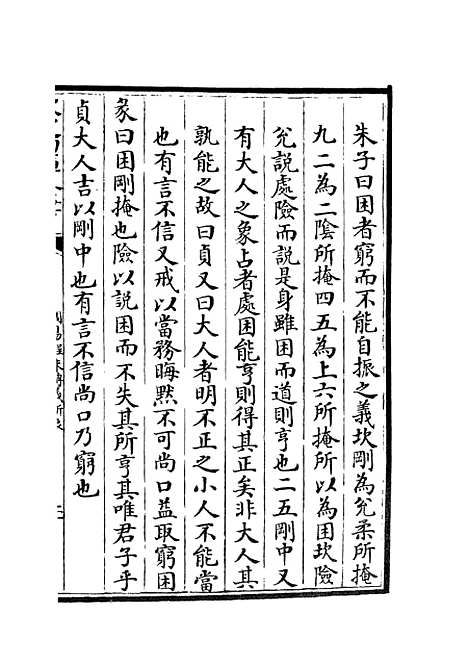 朱子曰困者窮而不能自振之義坎剛為兌柔所掩
九二為二陰所掩四五為上六所掩所以為困坎險
兌說處險而說是身雖困而道則亨也二五剛中又
有大人之象占者處困能亨則得其正矣非大人其
孰能之故曰貞又曰大人者明不正之小人不能當
也有言不信又戒以當務晦默不可尚口益取窮困
彖曰困剛掩也險以說困而不失其所亨其唯君子乎
貞大人吉以剛中也有言不信尚口乃窮也